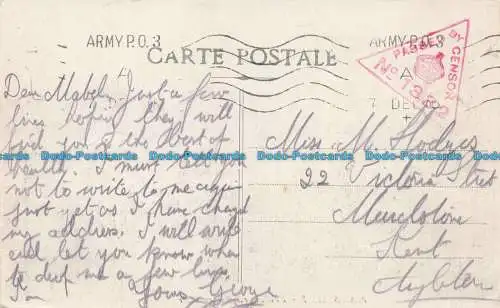 ARMY P.O. 3
CARTE POSTALE
ARMY P.O. 3
PASSED BY CENSOR
No 1322
A
7
DE
Dear Mabel, Just a few
lines hoping they will
find you in the best of
health. I must tell you
not to write to me again
just yet as I have changed
my address. I will write
and let you know when
to drop me a few lines.
Yours George
Miss M. Hodges
22 Victoria Street
Kent
Dodo-Postcards Dodo-Postcards Dodo-Postcards Dodo-Postcards Dodo-Postcards Dodo-Postcards